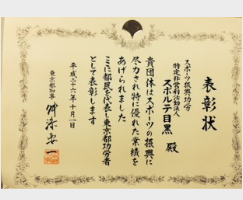 表彰状
スポーツ振興功労
特定非営利活動法人
スポルテ目黒 殿
貴団体はスポーツの振興に
尽力され特に優れた業績を
あげられました
ここに都民を代表し東京都功労者
として表彰します
平成二十六年十月一日
東京都知事 舛添要一